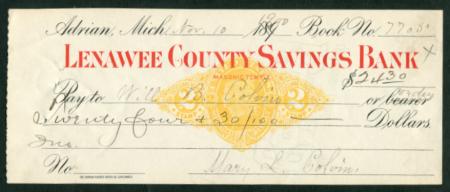 Adrian, Mich Nov. 10 1890 Book No 7705
LENAWEE COUNTY SAVINGS BANK
MASONIC TEMPLE
$24.30
Pay to Will B. Colvin or bearer
2 2
Twenty four & 30/100 Dollars.
No. Mary L. Colvin